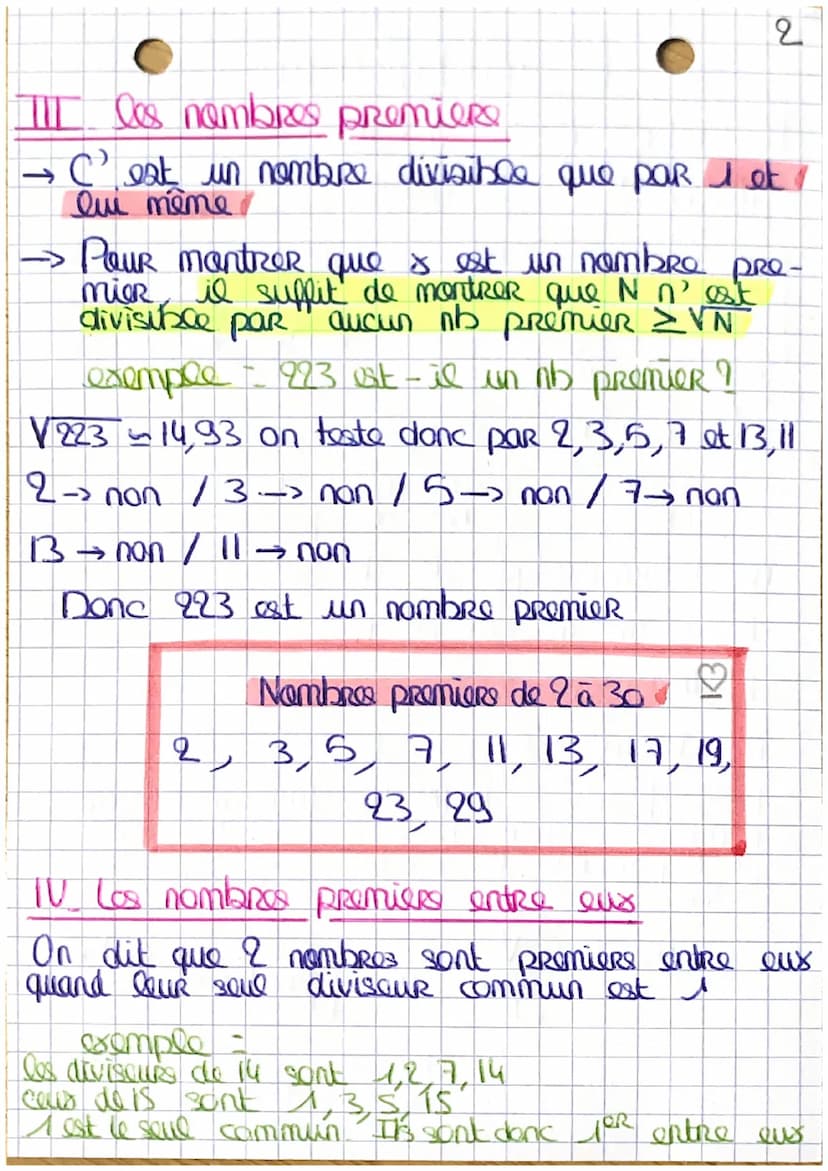 2
III Les nombres premiers
→ C'est un nombre divisible que par 1 et
lui même
→ Pour montrer que x est un nombre pre-
mier, il suffit de montrer que N n'est
divisible par aucun nb premier ≥ √N
exemple = 223 est-il un nb premier ?
√223 ≃ 14,93 on teste donc par 2,3,5,7 et 13,11
2 → non / 3 → non / 5 → non / 7 → non
13 → non / 11 → non
Donc 223 est un nombre premier
Nombres premiers de 2 à 30
2, 3, 5, 7, 11, 13, 17, 19,
23, 29
IV. Les nombres premiers entre eux
On dit que 2 nombres sont premiers entre eux
quand leur seul diviseur commun est 1
exemple =
les diviseurs de 14 sont 1,2,7,14
ceux de 15 sont 1,3,5,15
1 est le seul commun. Ils sont donc 1er entre eux